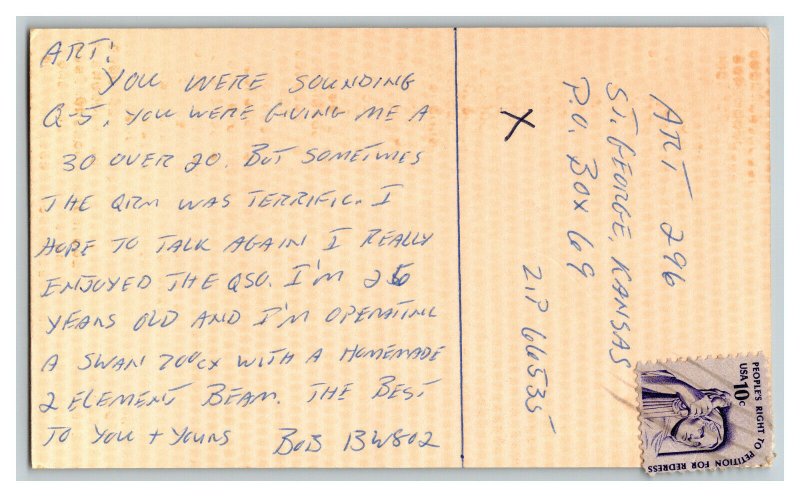 ART:
YOU WERE SOUNDING
Q-5, YOU WERE GIVING ME A
30 OVER 20. BUT SOMETIMES
THE QRM WAS TERRIFIC. I
HOPE TO TALK AGAIN I REALLY
ENJOYED THE QSO. I'M 26
YEARS OLD AND I'M OPERATING
A SWAN 700CX WITH A HOMEMADE
2 ELEMENT BEAM. THE BEST
TO YOU + YOURS BOB 13W802
X
ART 296
ST. GEORGE, KANSAS
P.O. BOX 69
ZIP 66535
PEOPLE'S RIGHT TO
PETITION FOR REDRESS
USA 10c